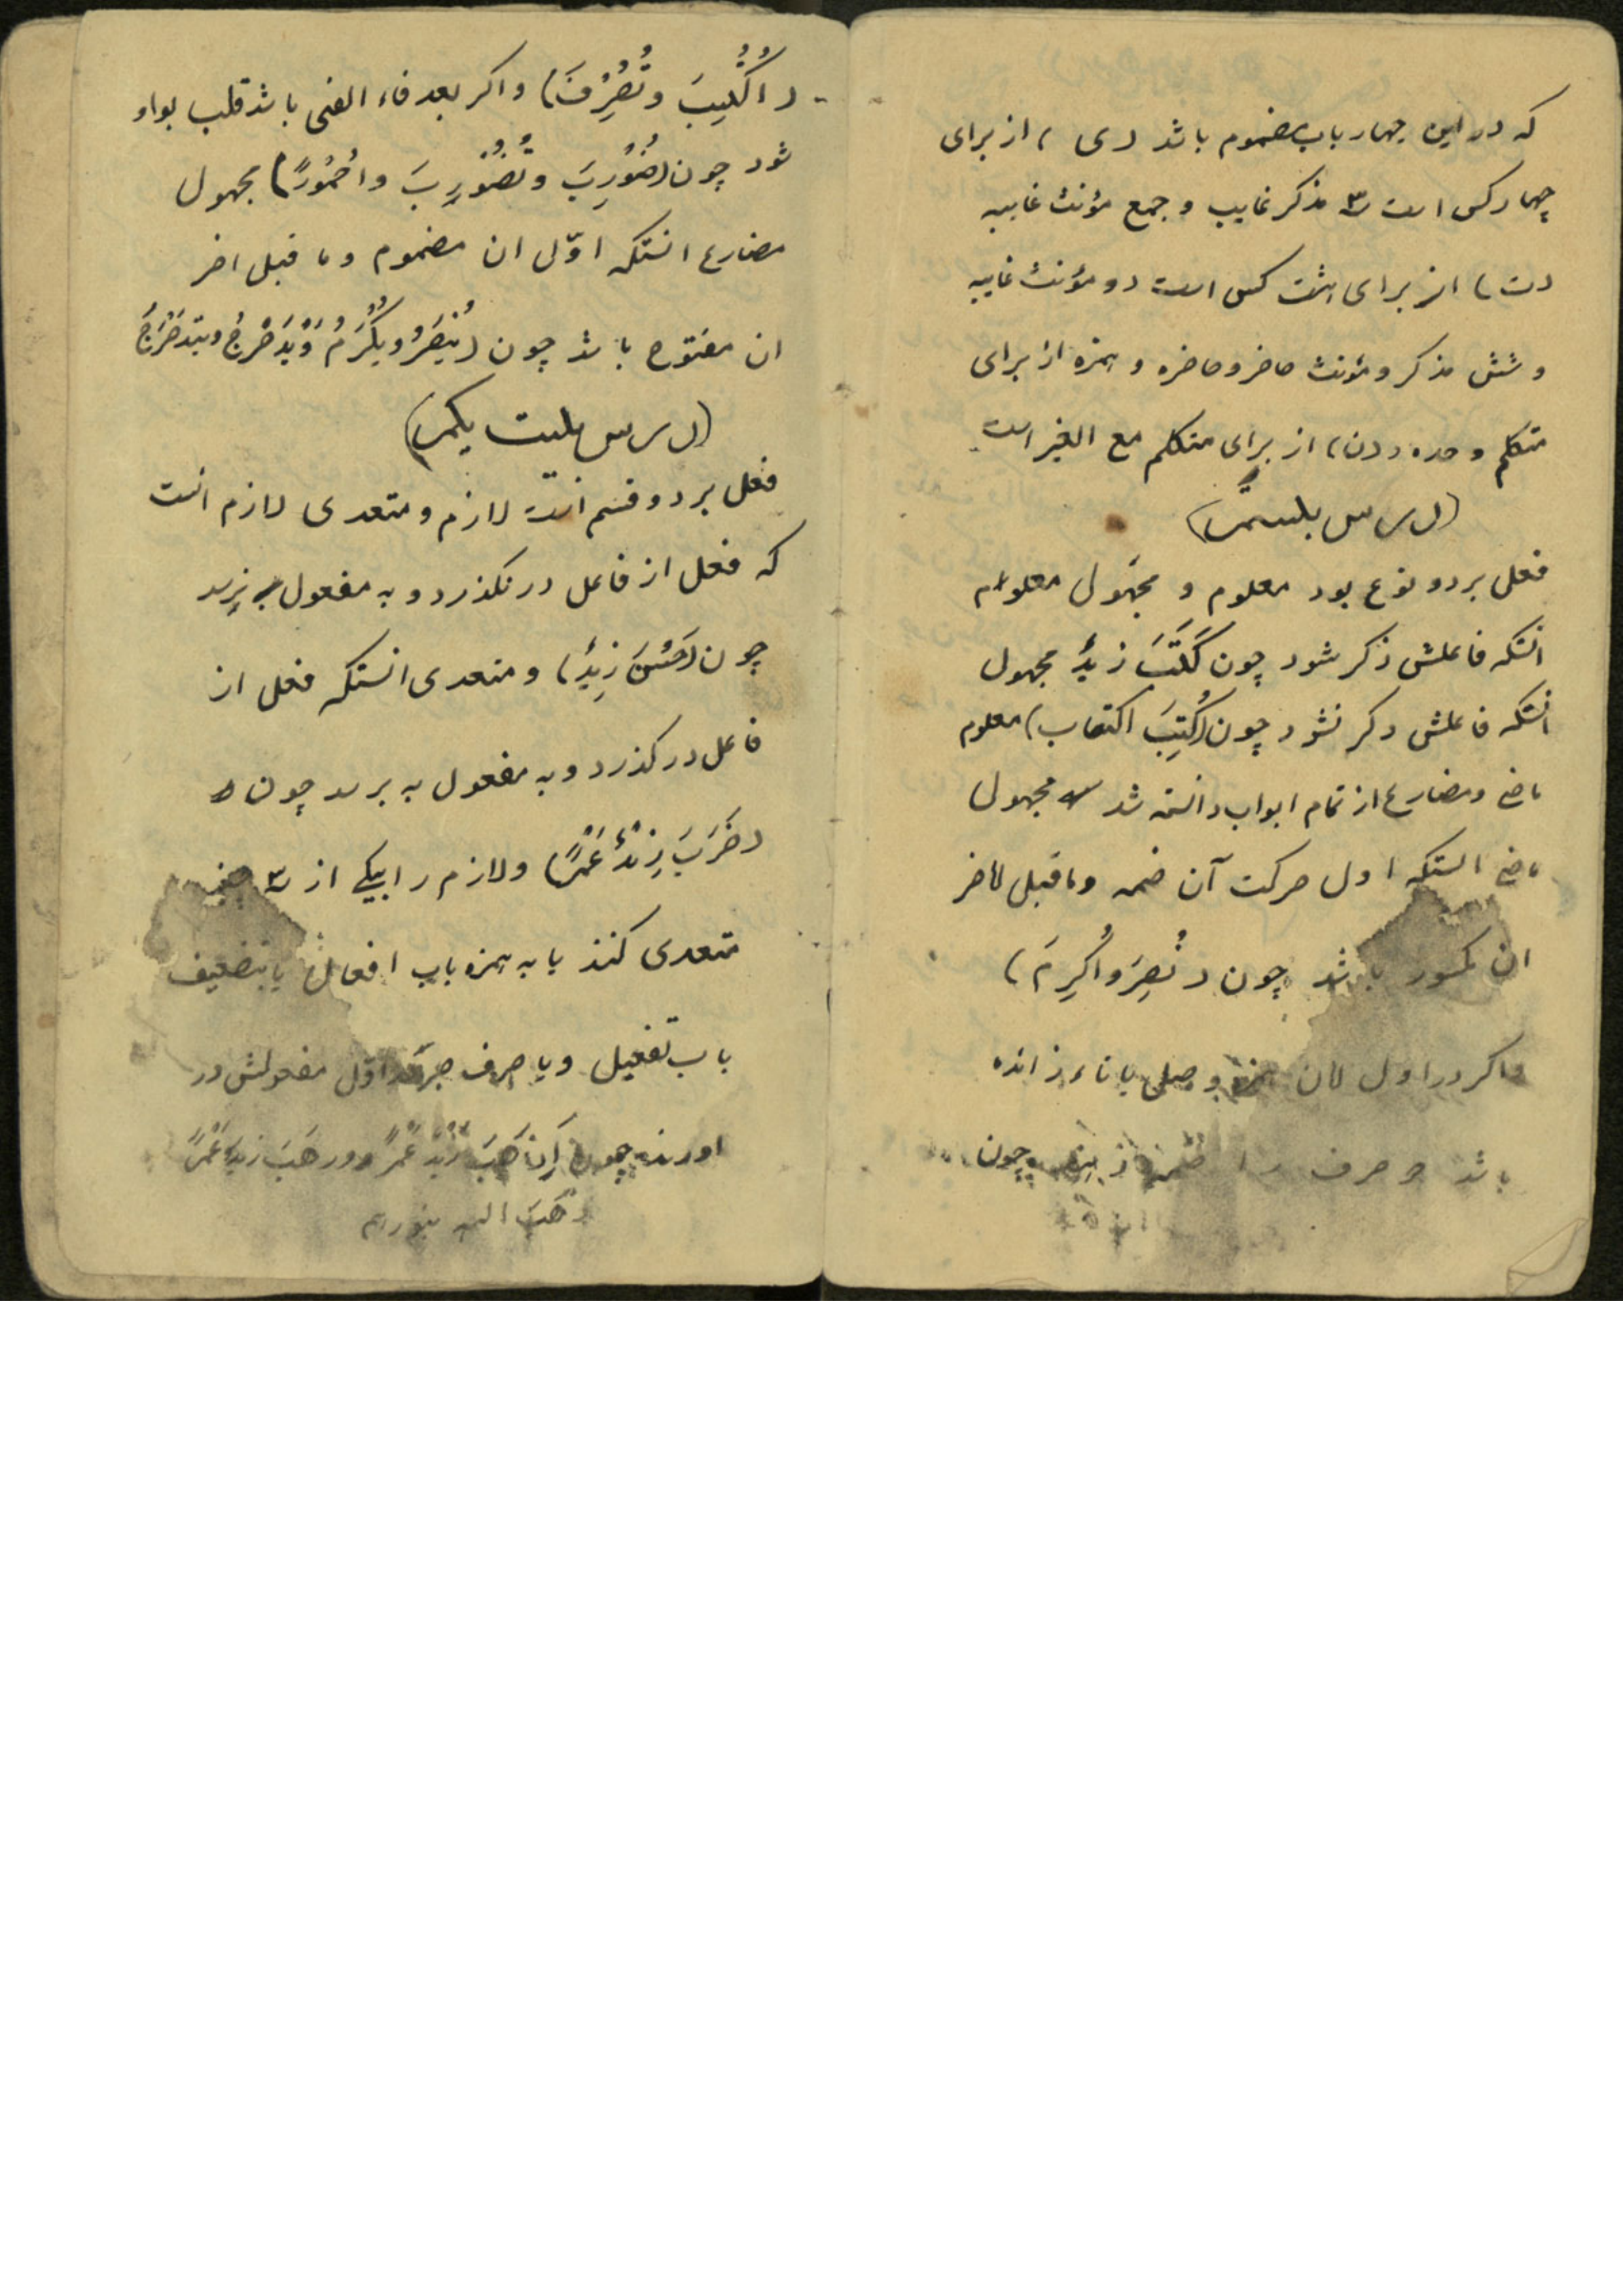 که در این چهار باب مضموم باشد (ی) از برای
چهار کس است ۳ مذکر غایب و جمع مؤنث غایبه
(ت) از برای هشت کس است دو مؤنث غایبه
و شش مذکر و مؤنث حاضر و حاضره و همزه از برای
متکلم وحده و (ن) از برای متکلم مع الغیر است
(درس بیستم)
فعل بر دو نوع بود معلوم و مجهول معلوم
انستکه فاعلش ذکر شود چون کَتَبَ زیدٌ مجهول
انستکه فاعلش ذکر نشود چون (کُتِبَ اکتاب) معلوم
ماضی و مضارع از تمام ابواب دانسته شد مجهول
ماضی انستکه اول حرکت آن ضمه و ماقبل لاخر
ان مکسور باشد چون (نُصِرَ و اُکرِمَ)
واکر در اول ان همزه وصلی یا تاء زائده
باشد حرف را ضمه چون
(اُکتُسِبَ و تُصُرِّفَ) واکر بعد فاء الفی باشد قلب بواو
شود چون (ضُورِبَ و تُضُورِبَ و احمُورَّ) مجهول
مضارع انستکه اوّل ان مضموم و ما قبل اخر
ان مفتوح باشد چون (یُنصَرُ و یُکرَمُ وَ یُدَحْرَجُ و یتدحرَجُ
(درس بیست یکم)
فعل بر دو قسم است لازم و متعدی لازم انست
که فعل از فاعل در نکذرد و به مفعول به نرسد
چون (حَسُنَ زیدٌ) و متعدی انستکه فعل از
فاعل در کذرد و به مفعول به برسد چون
(ضَرَبَ زیْدٌ عَمْرًا) و لازم را بیکی از ۳ چیز
متعدی کنند یا به همزه باب افعال یا بتضعیف
باب تفعیل و یا حرف جر که اول مفعولش در
اورند چون اَذهَبَ زَیْدٌ عَمرً و ذهَّبَ زیدٌ عَمْرً
ذَهَبَ الله بنورهم